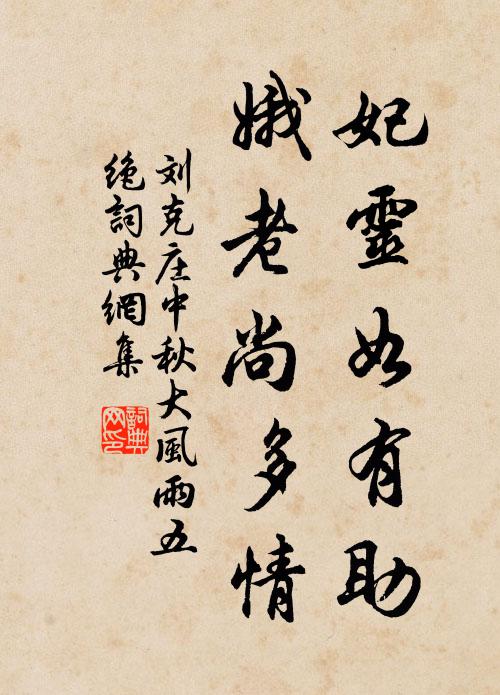 妃靈如有助
娥老尚多情
刘克庄中秋大風雨五
绝詞典網集
詞典网印